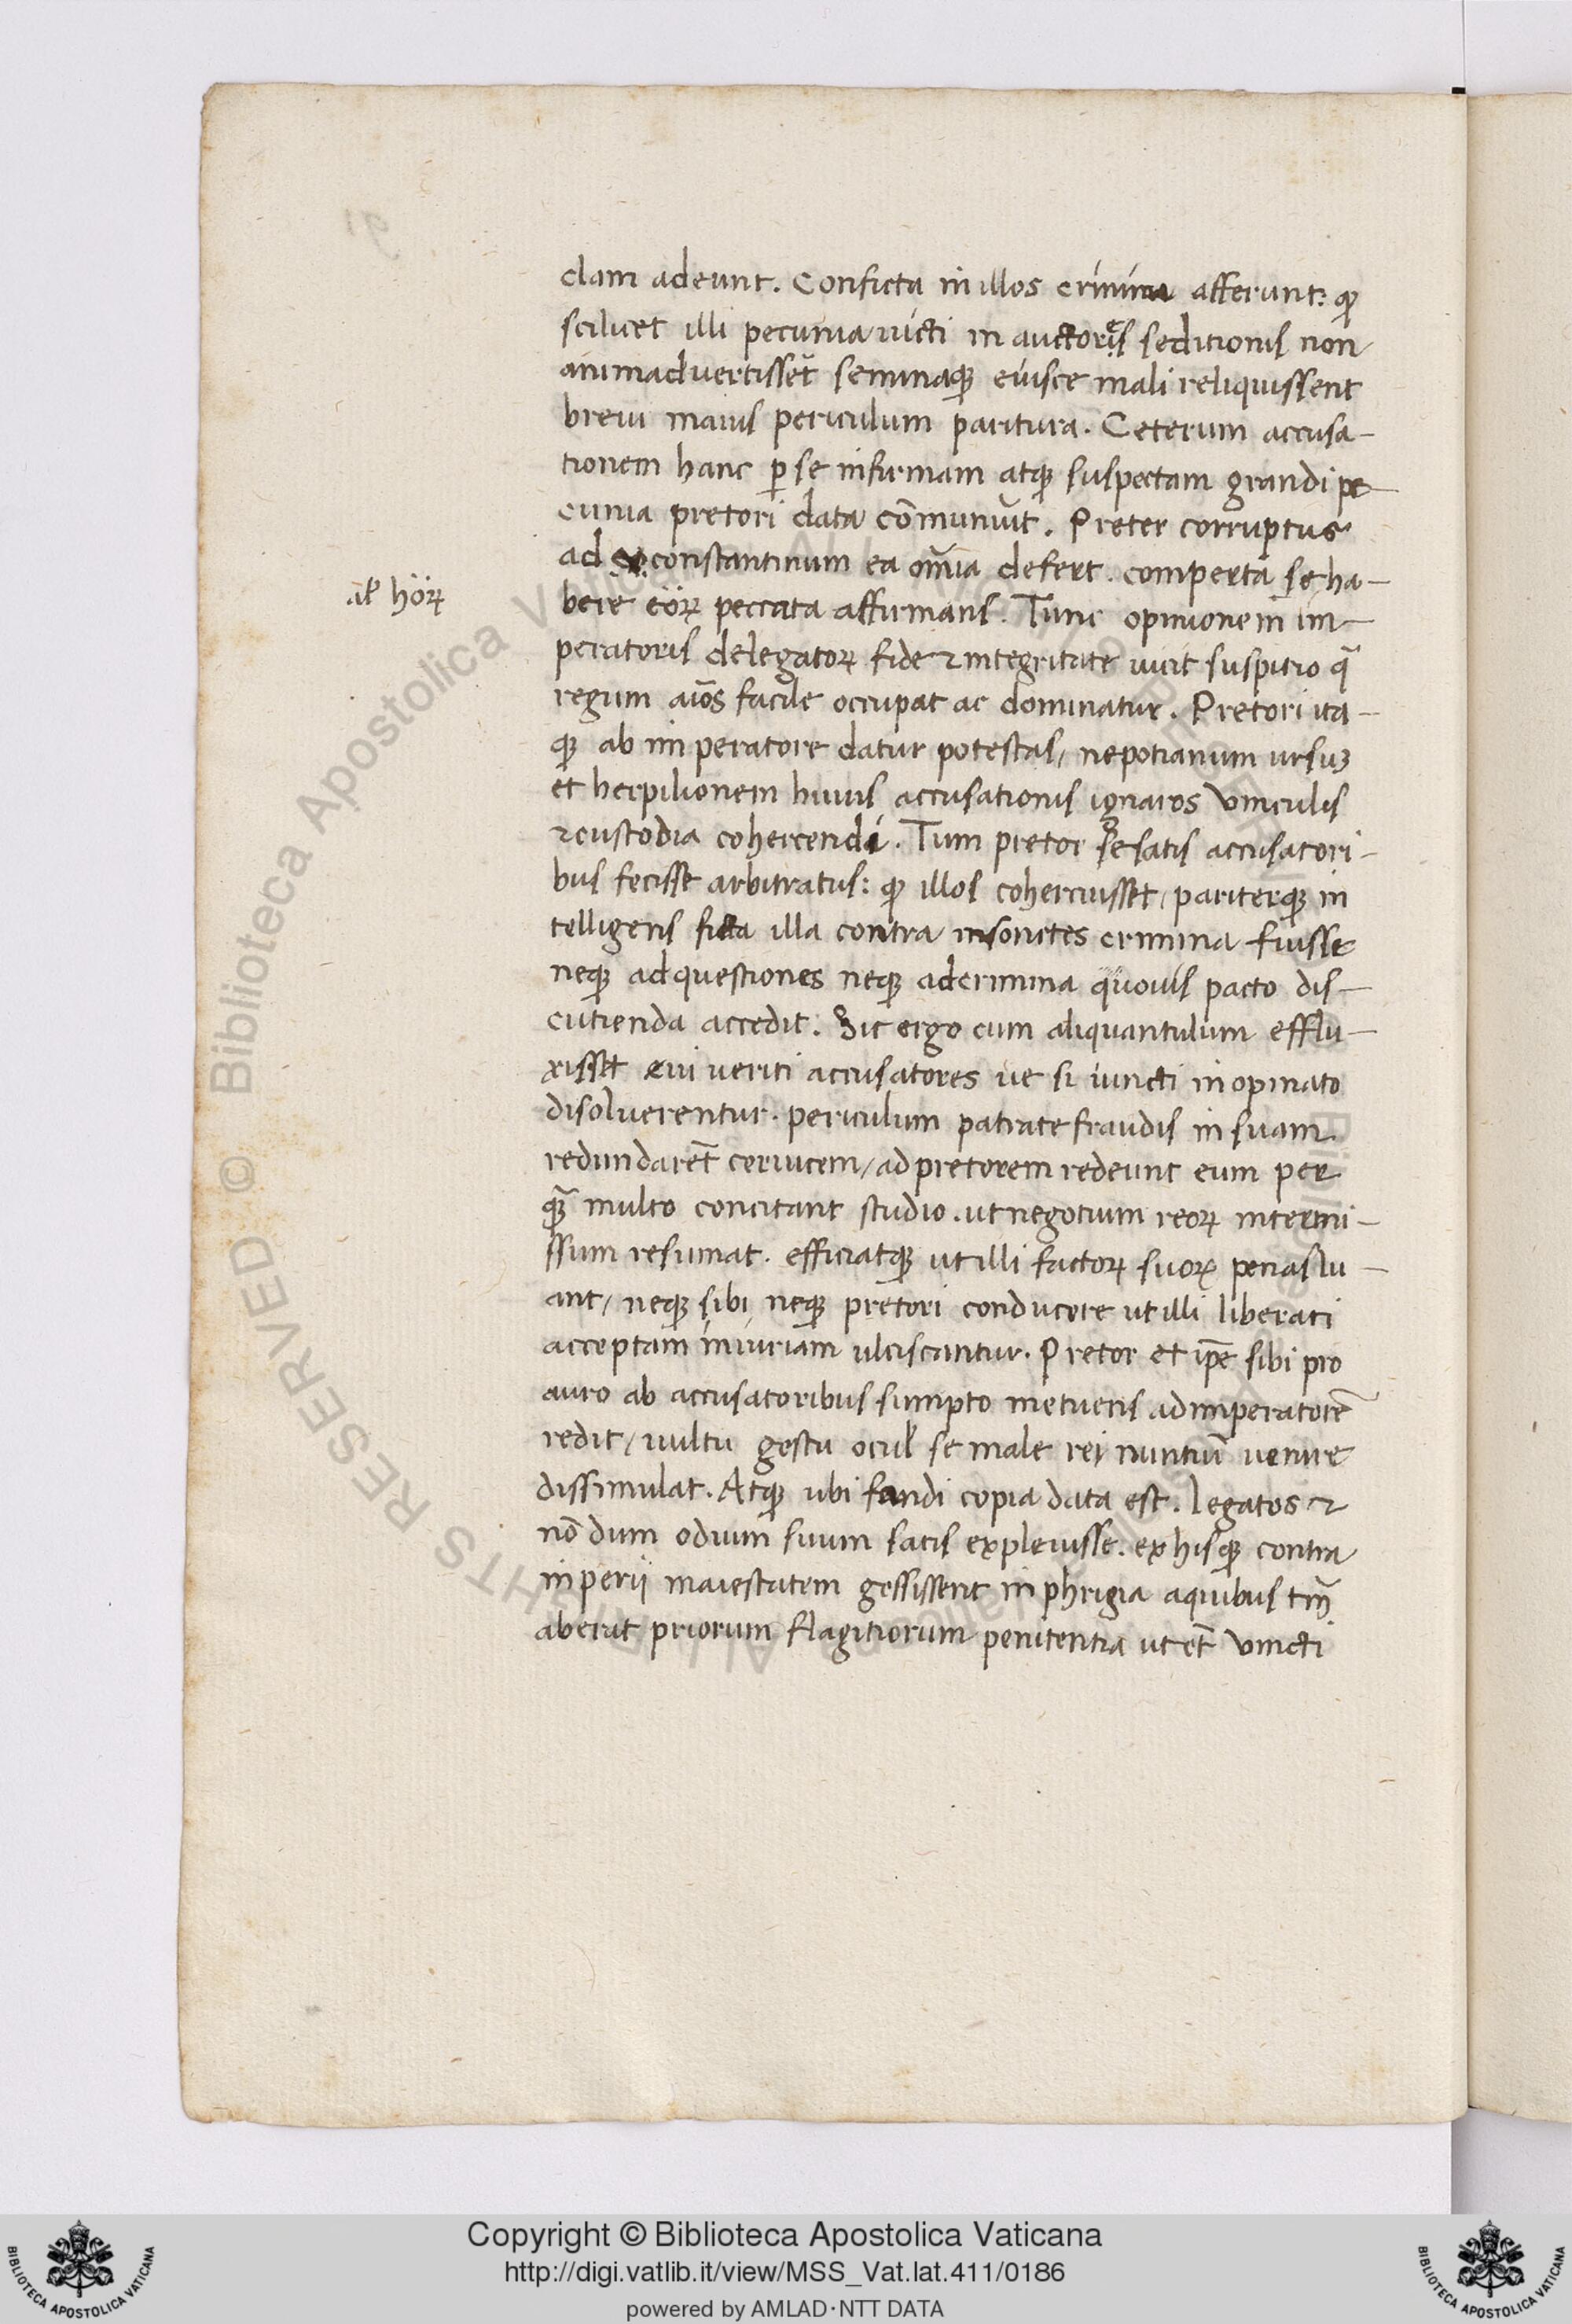 clam adeunt. Conficta in illos crimina afferunt: qꝫ
scilicet illi pecunia uicti in auctores seditionis non
animadvertissēt seminaqꝫ eiusce mali reliquissent
brevi maius periculum paritura. Ceterum accusa-
tionem hanc ꝑ se infirmam atqꝫ suspectam grandi pe-
cunia pretori data cōmuniūt. Preter corruptus
ad constantinum ea om̄ia defert. comperta se ha-
al̄ hōꝝ
bere eōꝝ peccata affirmans. Tunc opinionem im-
peratoris delegatoꝝ fide ⁊ integritate uicit suspitio q̄
regum aīos facile occupat ac dominatur. Pretori ita-
qꝫ ab imperatore datur potestas/ nepotianum ursuꝫ
et herpilionem huius accusationis ignaros vinculis
⁊ custodia cohercendi. Tum pretor se satis accusatori-
bus fecisse arbitratus: qꝫ illos cohercuisset/ pariterqꝫ in
telligens ficta illa contra insontes crimina fuisse
neqꝫ ad questiones neqꝫ ad crimina quovis pacto dis-
cutienda accedit. Sic ergo cum aliquantulum efflu-
xisset evi veriti accusatores ne si iuncti inopinato
disolverentur. periculum patrate fraudis in suam
redundarēt cervicem/ ad pretorem redeunt eum per
qꝫ̄ multo concitant studio. ut negotium reoꝝ intermi-
ssum resumat. efficiatqꝫ ut illi factoꝝ suoꝝ penas lu-
ant/ neqꝫ sibi neqꝫ pretori conducere ut illi liberati
acceptam iniuriam ulciscantur. Pretor et ip̄e sibi pro
auro ab accusatoribus sumpto metuens ad imperatorē
redit/ vultu gestu ocul̄ se male rei nuntiū venire
dissimulat. Atqꝫ ubi fandi copia data est. legatos ⁊
nō dum odium suum satis explevisse. ex hisqꝫ contra
inperii maiestatem gessissent in phrigia a quibus tm̄
aberat priorum flagitiorum penitentia ut et̄ vincti
Copyright © Biblioteca Apostolica Vaticana
http://digi.vatlib.it/view/MSS_Vat.lat.411/0186
powered by AMLAD·NTT DATA